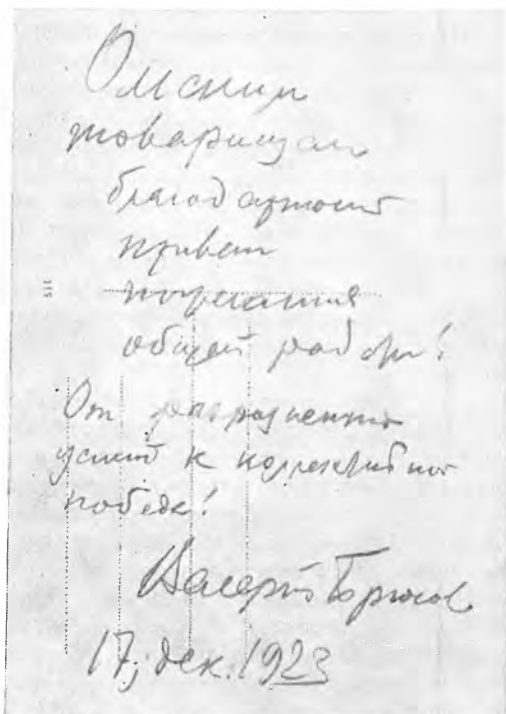 Омским
товарищам
благодарность
привет
пожелания
общей работы!
От разрозненных
усилий к коллективной
победе!
Валерий Брюсов
17, дек. 1923